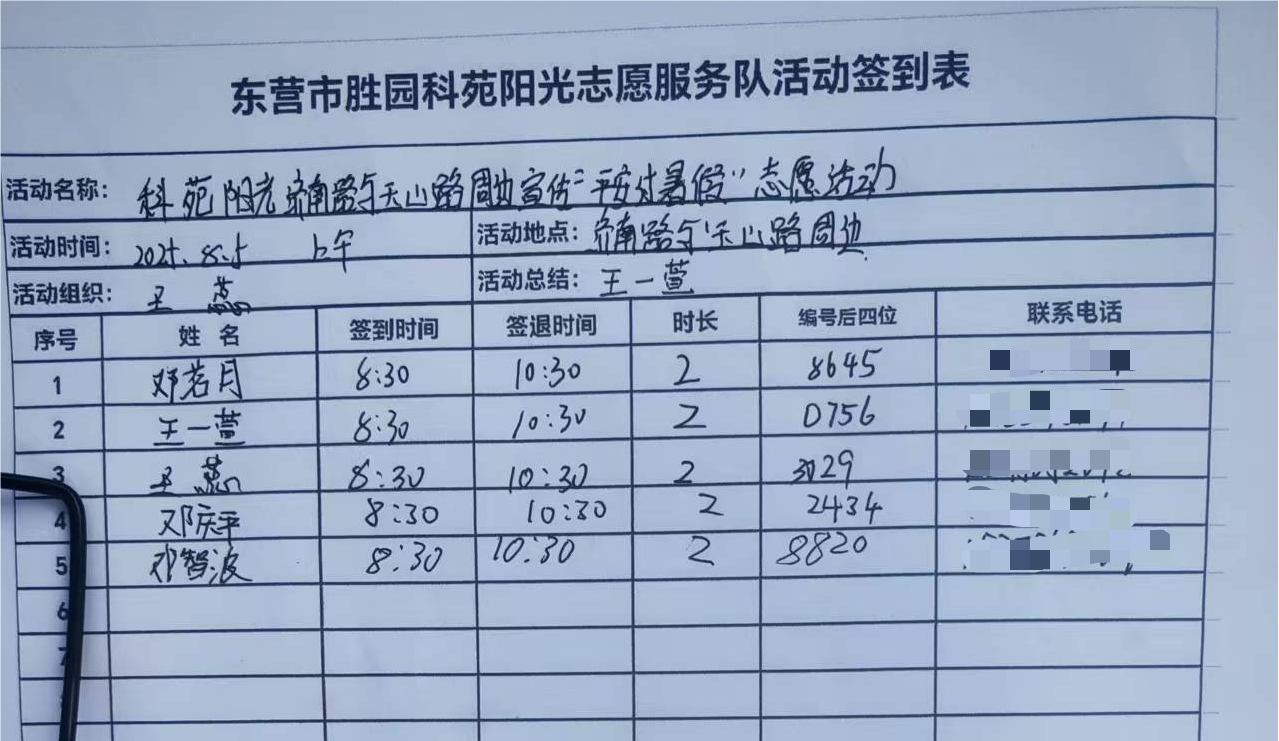 东营市胜园科苑阳光志愿服务队活动签到表
活动名称: 科苑阳光济南路与天山路周边宣传“平安过暑假”志愿活动
活动时间: 2025.8.5 上午 活动地点: 济南路与天山路周边
活动组织: 王蕊 活动总结: 王一萱
序号 姓名 签到时间 签退时间 时长 编号后四位 联系电话
1 邓若月 8:30 10:30 2 8645
2 王一萱 8:30 10:30 2 0756
3 王蕊 8:30 10:30 2 29
4 邓庆平 8:30 10:30 2 2434
5 邓智波 8:30 10:30 2 8820
6
7